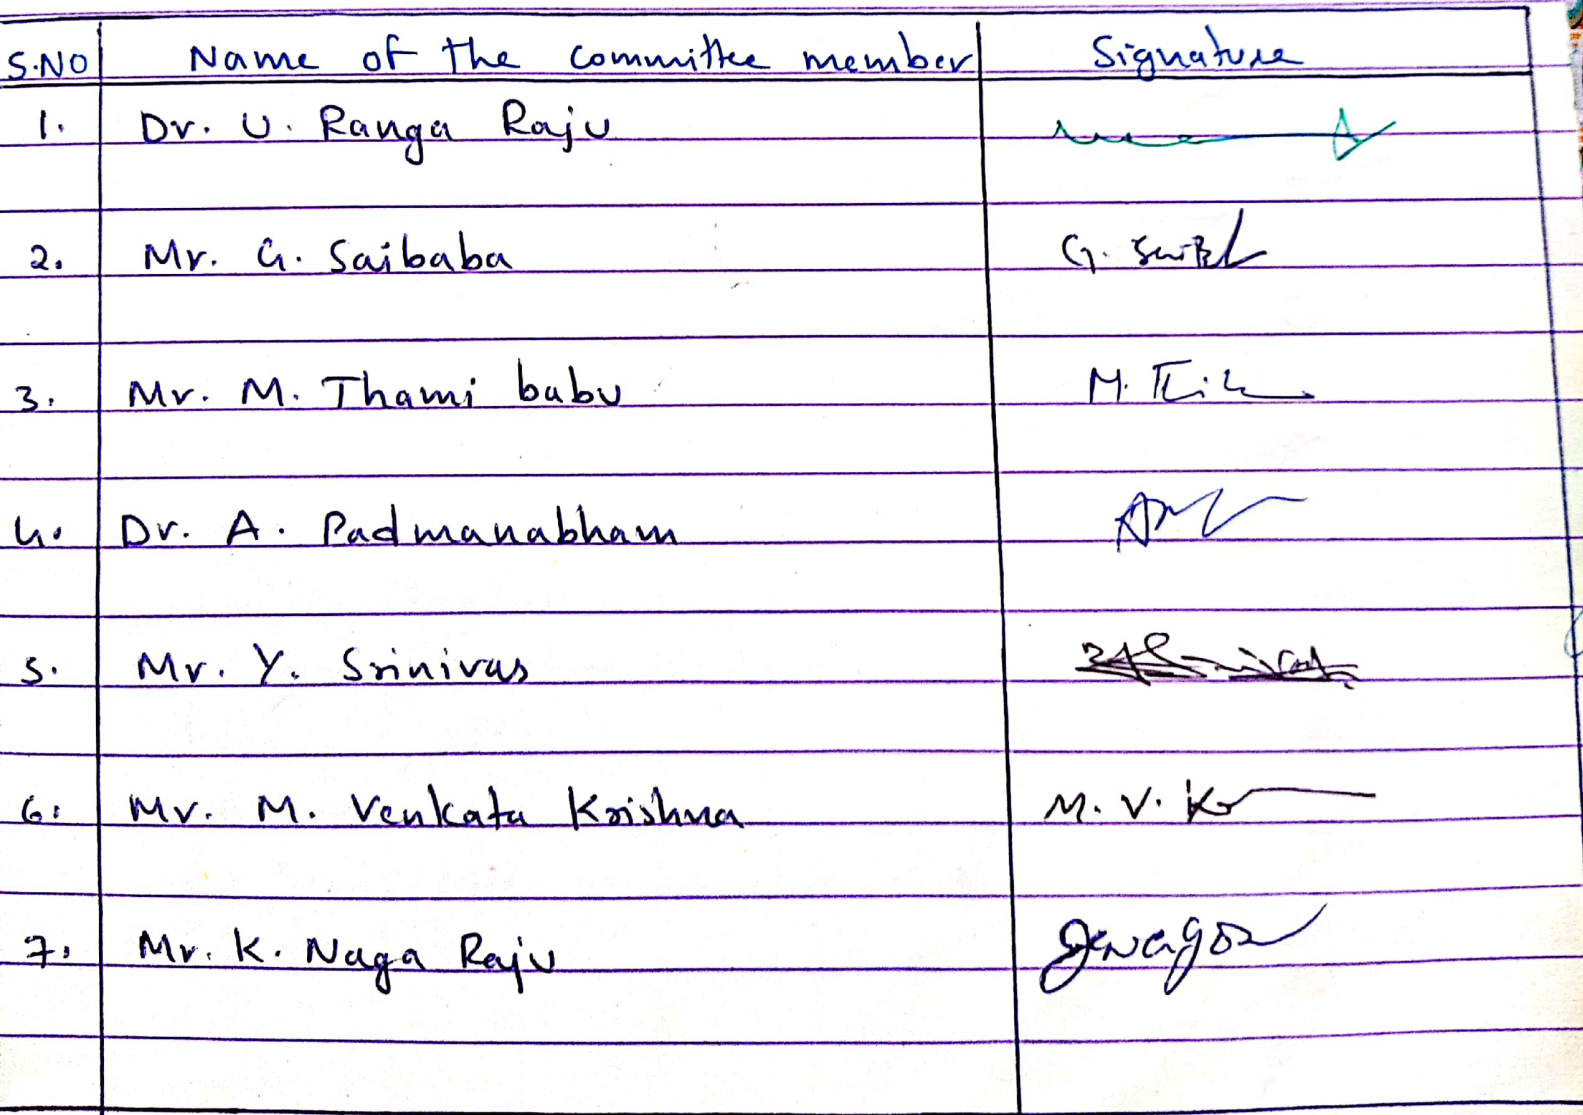 S.NO Name of the committee member Signature
1. Dr. U. Ranga Raju
2. Mr. G. Saibaba G.
3. Mr. M. Thami babu M.
4. Dr. A. Padmanabham
5. Mr. Y. Srinivas
6. Mr. M. Venkata Krishna M. V.
7. Mr. K. Naga Raju